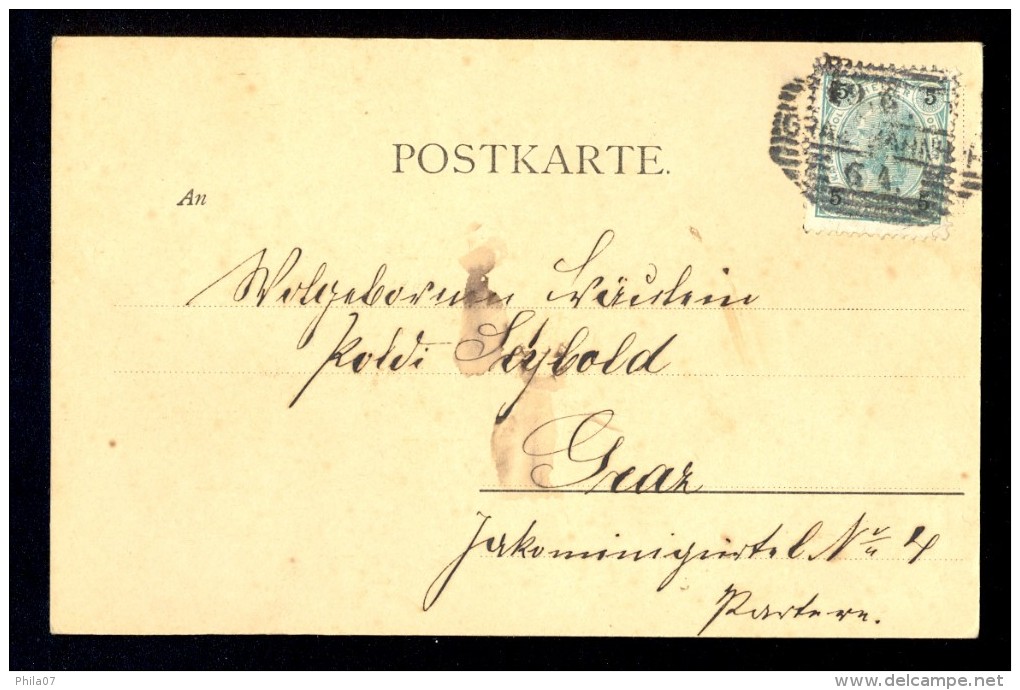 POSTKARTE.
An
5 5
5 5
Wolgeboruen Fräulein
Poldi Seybold
Graz
Jakominigürtel No 4
Partere.
Phila07
www.delcampe.net